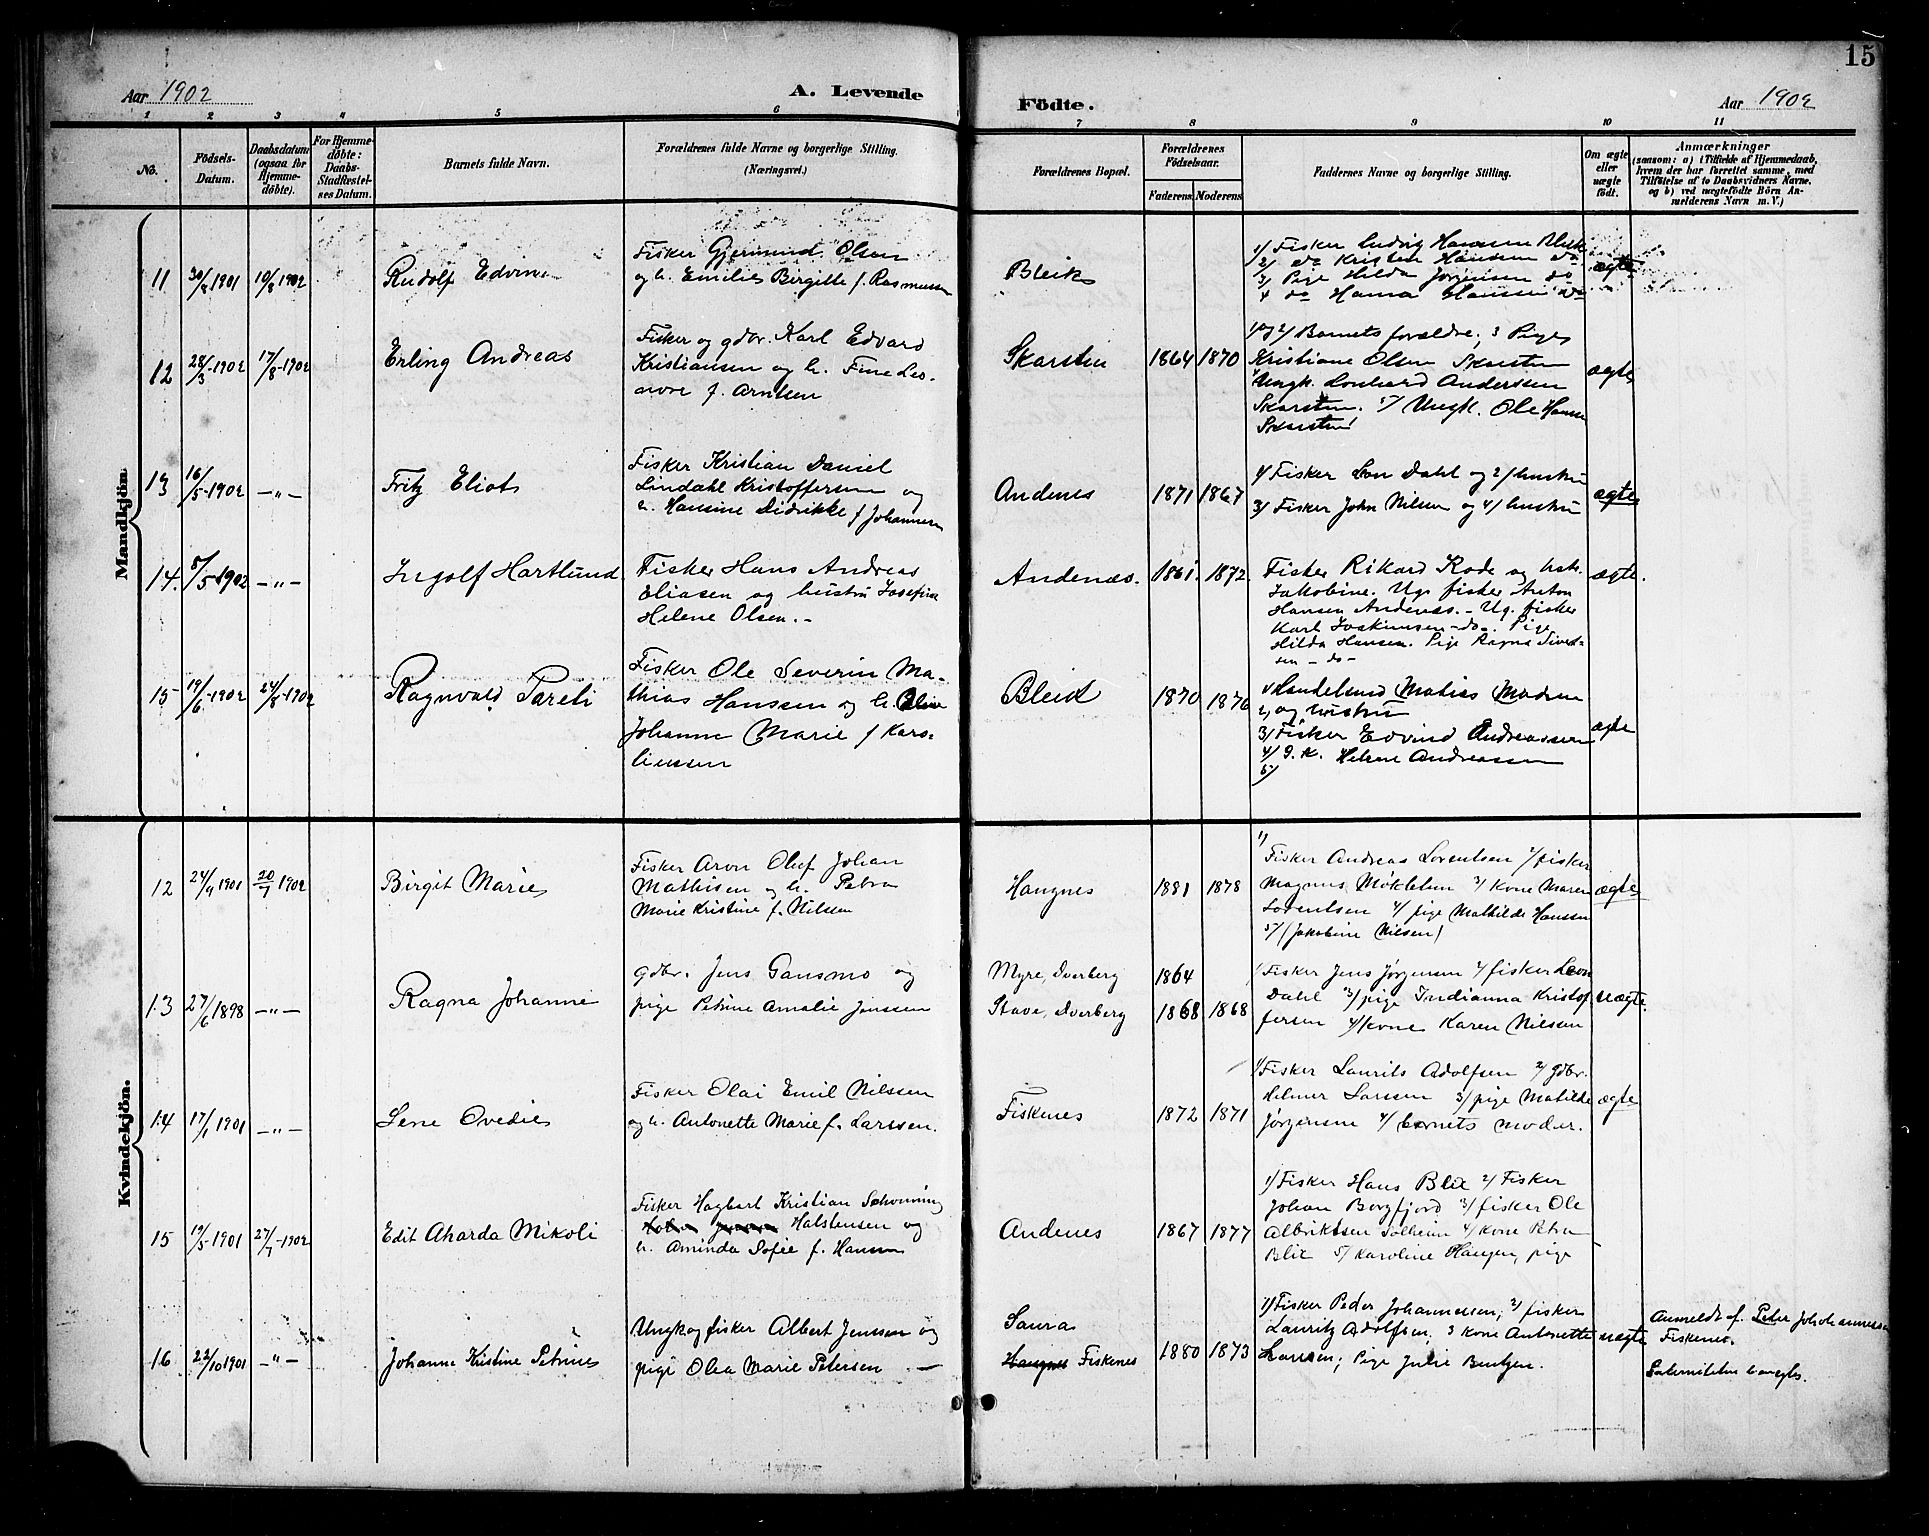 15
Aar 1902
A. Levende
Födte.
Aar 1902
1 2 3 4 5 6 7 8 9 10 11
No.
Födsels-
Datum.
Daabsdatum
(ogsaa for
Hjemme-
døbte).
For Hjemme-
døbte:
Daabs-
Stadfæstel-
ses Datum.
Barnets fulde Navn.
Forældrenes fulde Navne og borgerlige Stilling.
(Næringsvei.)
Forældrenes Bopæl.
Forældrenes
Födselsaar.
Faderens Moderens
Faddernes Navne og borgerlige Stilling.
Om ægte
eller
uægte
født.
Anmærkninger
(saasom: a) i Tilfælde af Hjemmedaab,
hvem der har forrettet samme, med
Tilføielse af to Daabsvidners Navne,
og b) ved uægtefödte Börn An-
melderens Navn m. V.)
Mandkjön
11 30/8 1901 10/8 1902
Rudolf Edvin
Fisker Gjermund Olsen
og h. Emilie Birgitte f. Rasmussen
Bleik
1/ Fisker Ludvig Hanssen Bleik
2/ do Kristen Hansen do
3/ Pige Hilda Jørgensen do
4 do Hanna Hanssen do
ægte
12 28/3-1902 17/8-1902
Erling Andreas
Fisker og gdbr. Karl Edvard
Kristiansen og h. Fine Leo-
nore f. Arntsen
Skarstein 1864 1870
1 og 2/ Barnets forældre; 3 Pige
Kristiane Olsen Skarsten
Ungk. Lonhard Anderssen
Skarsten. 5/ Ungk. Ole Hansen
Skarsten
ægte
13 16/5-1902 -"-
Fritz Eliot
Fisker Kristian Daniel
Lindahl Kristoffersen og
h. Hansine Didrikke f Johannesen
Andenes 1871 1867
1/ Fisker Leon Dahl og 2/ hustru
3/ Fisker John Nilsen og 4/ hustru
ægte
14. 8/5-1902 -"-
Ingolf Hartlund
Fisker Hans Andreas
Eliasen og hustru Josefine
Helene Olsen.-
Andenæs. 1861. 1872.
Fisker Rikard Rode og hstr.
Jakobine. Ug. fisker Anton
Hansen Andenæs. - Ug. fisker
Karl Joakimsen - do. Pige
Hilda Hansen. Pige Ragna Sivert-
sen - do -
ægte.
15 19/6-1902 24/8-1902
Ragnvald Pareli
Fisker Ole Severin Ma-
thias Hanssen og h. Oline
Johanne Marie f Karo-
liussen
Bleik 1870 1876
1/ Handelsmd Matias Madsen
2, og hustru
3/ Fisker Edvind Andreassen
4/ g. K. Helene Andreassen
5/
ægte
Kvindekjön.
12 24/4 1901 20/7 1902
Birgit Marie
Fisker Aron Oluf Johan
Mathisen og h. Petra
Marie Kristine f. Nilsen
Haugnes 1881 1878
1/
Fisker Andreas Lorentsen 2/ fisker
Magnus Mökleben 3/ kone Maren
Lorentsen 4/ pige Mathilde Hanssen
5/ (Jakobine Nilsen)
ægte
13 27/6 1898 -"-
Ragna Johanne
gdbr. Jens Gansmo og
pige Petrine Amalie Jenssen
Myre, Dverberg 1864
Stave, Dverberg 1868 1868
1/ Fisker Jens Jørgensen 2/ fisker Leon
Dahl 3/ pige Indianna Kristof
fersen 4/ kone Karen Nilsen
uægte.
14 17/1 1901 -"-
Lene Ovedie
Fisker Olai Emil Nilssen
og h. Antonette Marie f. Larssen.
Fiskenes 1872 1871
1/ Fisker Laurits Adolfsen 2/ gdbr.
Helmer Larssen 3/ pige Matilde
Jørgensen 4/ barnets moder.
ægte
15 19/5-1901 27/7-1902
Edit Aharda Mikoli
Fisker Hagbart Kristian Schonning
Halstensen og
h. Aminda Sofie f. Hansen
Andenes 1867 1877
1/ Fisker Hans Blix 2/ Fisker
Johan Borgfjord 3/ fisker Ole
Albriktsen Solheim 4/ kone Petra
Blix 5/ Karoline Haugen, pige
16 22/10 1901 -"-
Johanne Kristine Petrine
Ungk og fisker Albert Jenssen og
pige Olea Marie Petersen -
Saura
Haugnes Fiskenes 1880 1873
1/ Fisker Peder Johannessen; 2/ fisker
Lauritz Adolfsen, 3 kone Antonette
Larsen; Pige Julie Bentzen.
uægte
Anmeldt af Peder Johannessen
Fiskenes.
Paterniteten benegtes.